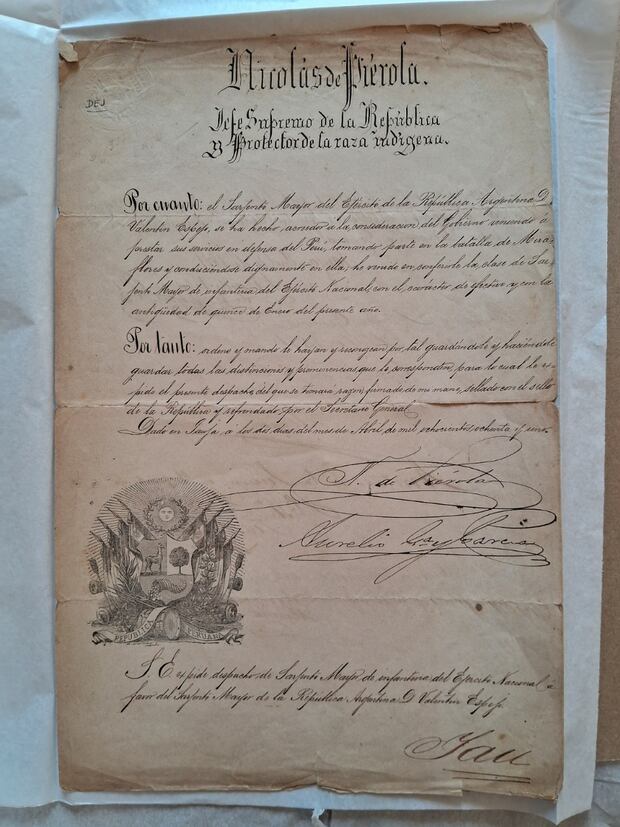 DEJ
Nicolás de Piérola.
Jefe Supremo de la República
y Protector de la raza indígena.
Por cuanto: el Sarjento Mayor del Ejército de la República Argentina D.
Valentin Espejo, se ha hecho acreedor a la consideracion del Gobierno viniendo á
prestar sus servicios en defensa del Perú, tomando parte en la batalla de Mira-
flores y conduciéndose dignamente en ella; he venido en conferirle la clase de Sar-
jento Mayor de infanteria del Ejército Nacional, con el caracter de efectivo y con la
antigüedad de quince de Enero del presente año.
Por tanto: ordeno y mando le hayan y reconozcan por tal guardándole y haciéndole
guardar todas las distinciones y preeminencias que le corresponden, para lo cual le es-
pido el presente despacho, del que se tomará razon, firmado de mi mano, sellado con el sello
de la República y refrendado por el Secretario General.
Dado en Jauja, a los dos dias del mes de Abril de mil ochocientos ochenta y uno.
N. de Piérola
Aurelio García y García
REPÚBLICA PERUANA
S. E. espide despacho de Sarjento Mayor de infanteria del Ejército Nacional á
favor del Sarjento Mayor de la República Argentina D. Valentin Espejo.